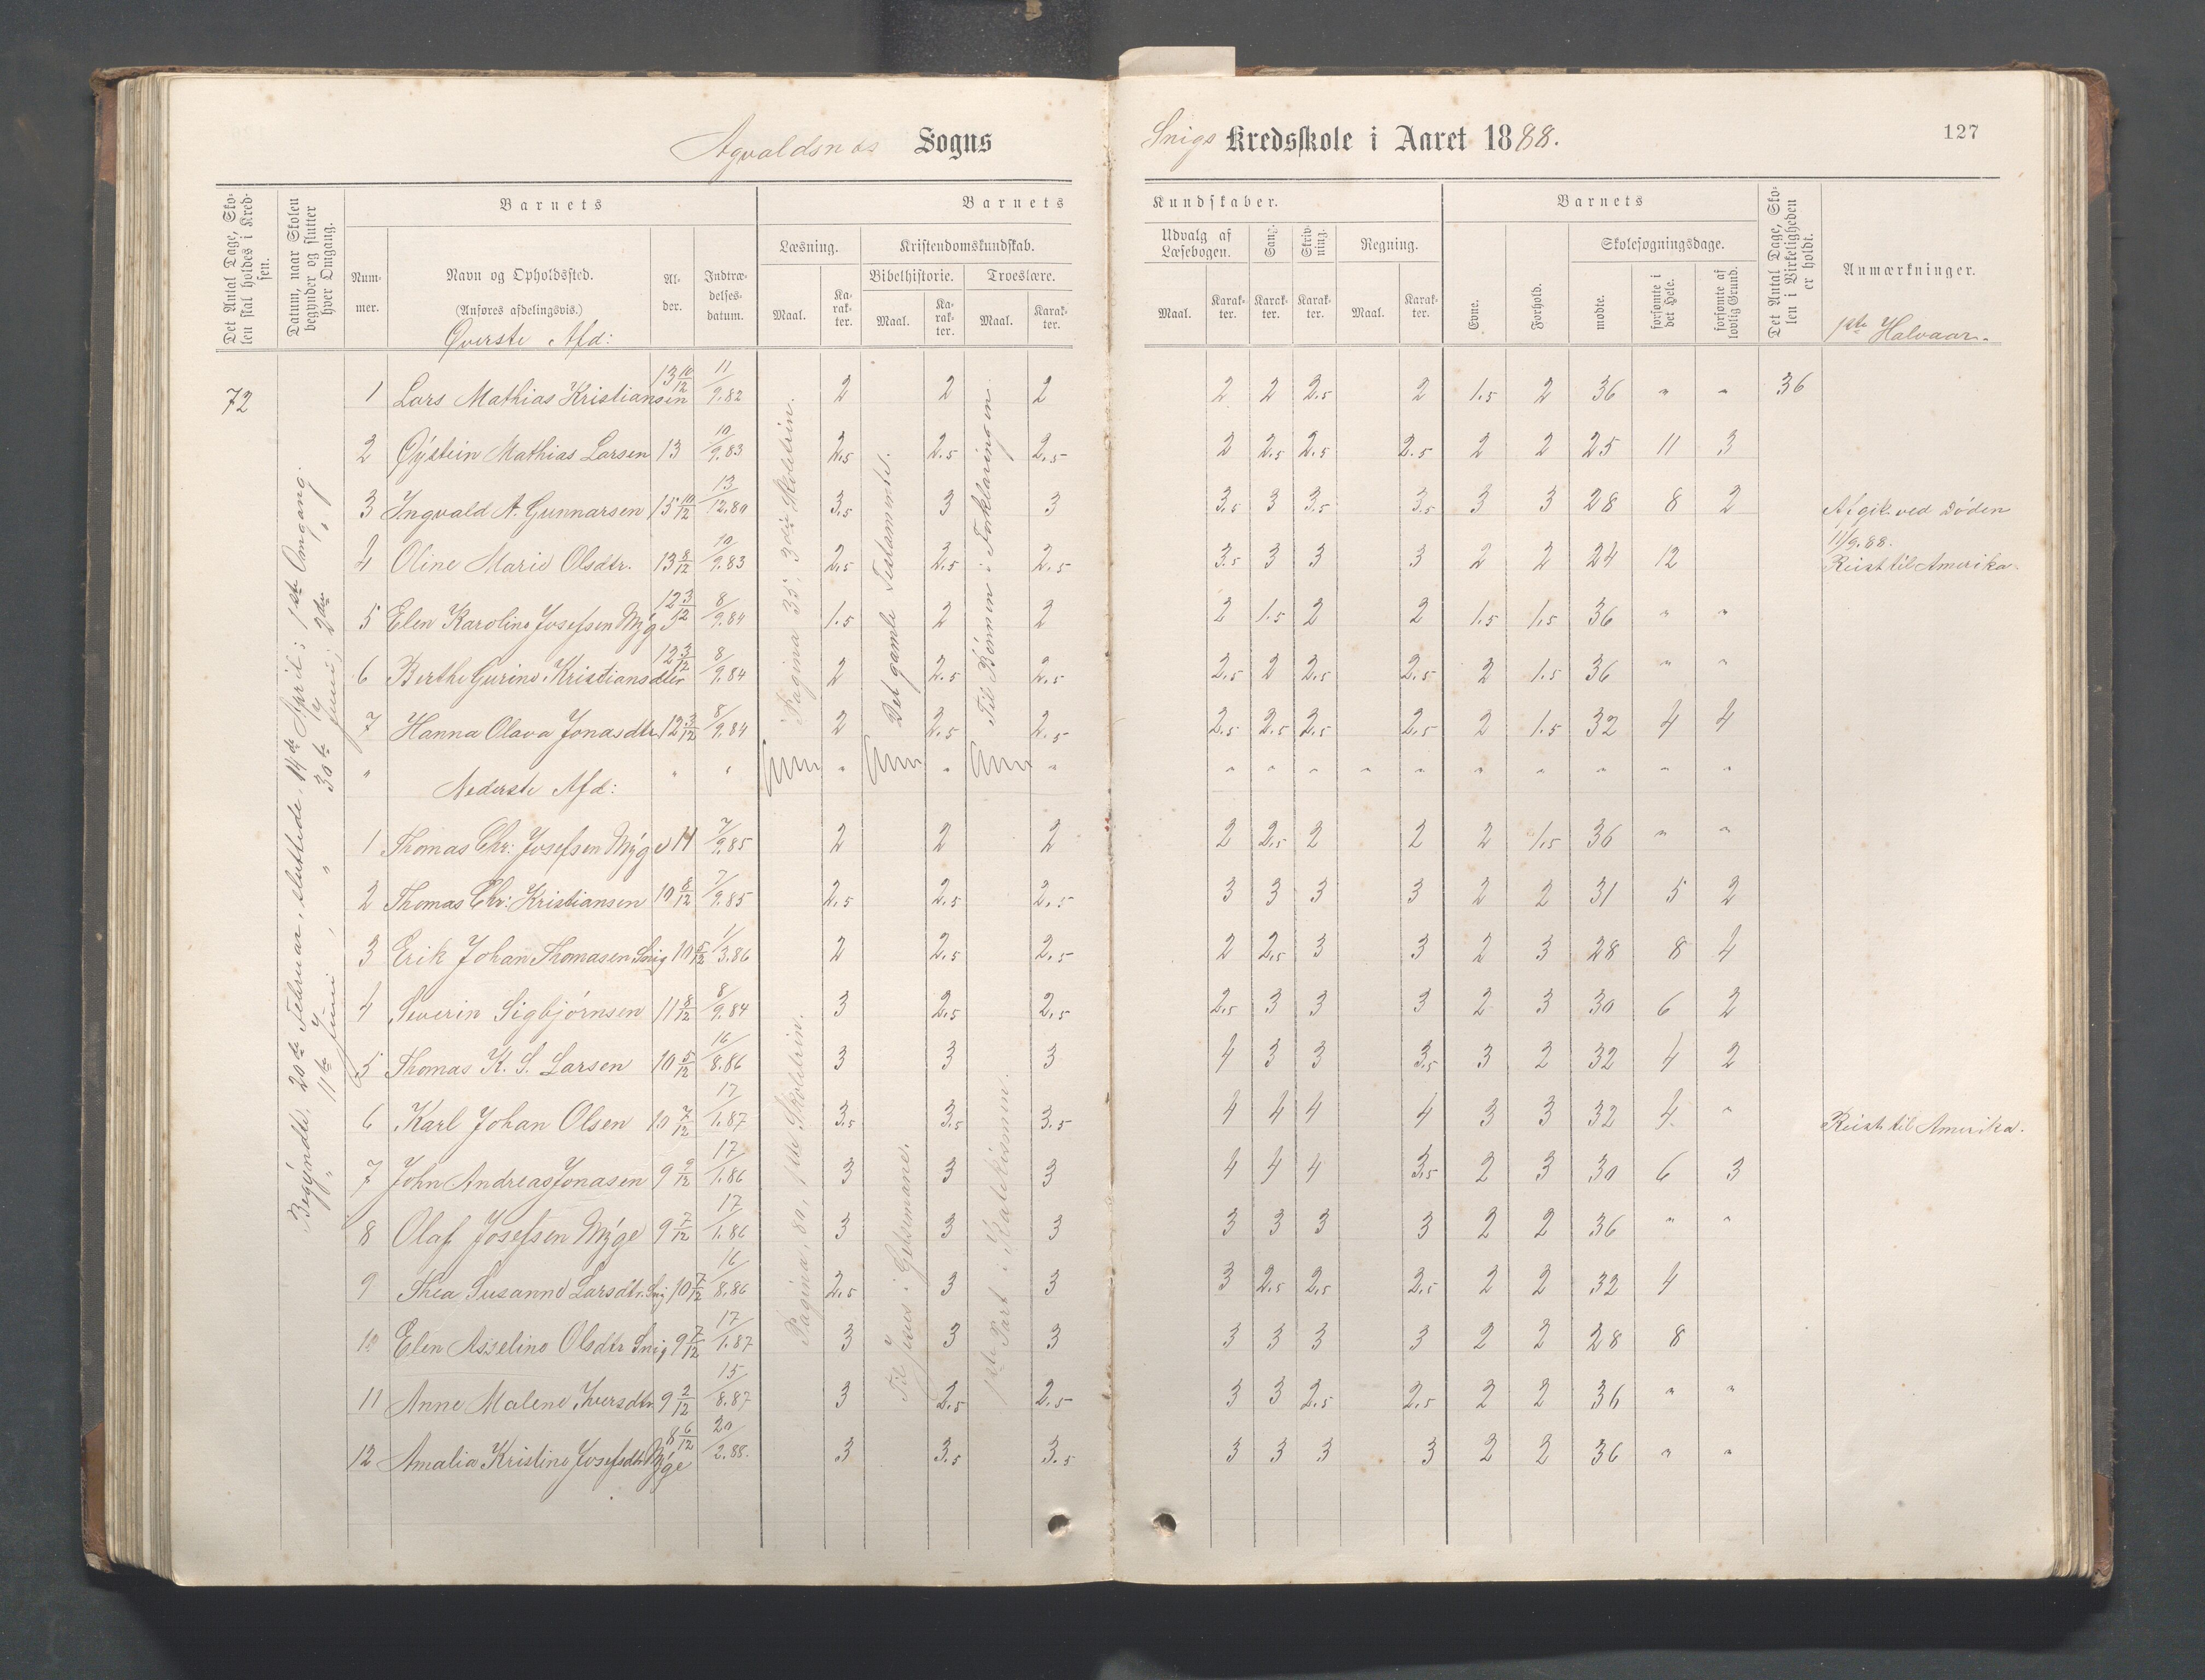 Agvaldsnes Sogns
Snigs Kredsskole i Aaret 1888.
127
Det Antal Dage, Sko-
len skal holdes i Kred-
sen.
Datum, naar Skolen
begynder og slutter
hver Omgang.
Barnets
Num-
mer.
Navn og Opholdssted.
(Anføres afdelingsvis.)
Al-
der.
Indtræ-
delses-
datum.
Barnets
Læsning.
Maal.
Ka-
rak-
ter.
Kristendomskundskab.
Bibelhistorie.
Maal.
Ka-
rak-
ter.
Troeslære.
Maal.
Karak-
ter.
Kundskaber.
Udvalg af
Læsebogen.
Maal.
Karak-
ter.
Sang.
Karak-
ter.
Skriv-
ning.
Karak-
ter.
Regning.
Maal.
Karak-
ter.
Barnets
Evne.
Forhold.
Skolesøgningsdage.
mødte.
forsømte i
det Hele.
forsømte af
lovlig Grund.
Det Antal Dage, Sko-
len i Virkeligheden
er holdt.
Anmærkninger.
1ste Halvaar.
Øverste Afd:
72
Begyndte, 20de Februar, sluttede, 14de April; 1ste Omgang.
" 11te Juni, " 30te Juni; 2den "
Pagina 35, 3die Skoletrin.
Det gamle Testamente.
Til Bønnen i Forklaringen.
1 Lars Mathias Kristiansen 13 10/12 11/9.82 2 2 2 2 2 2.5 2 1.5 2 36 " " 36
2 Øystein Mathias Larsen 13 10/9.83 2.5 2.5 2.5 2 2.5 2.5 2.5 2 2 25 11 3
3 Ingvald A. Gunnarsen 15 10/12 13/12.80 3.5 3 3 3.5 3 3.5 3.5 3 3 28 8 2 Afgik ved Døden
11/9.88.
4 Oline Marie Olsdtr. 13 8/12 10/9.83 2.5 2.5 2.5 3.5 3 3 3 2 2 24 12 Reist til Amerika.
5 Elen Karoline Josefsen Myge 12 3/12 8/9.84 1.5 2 2 2 1.5 2 2 1.5 1.5 36 " "
6 Berthe Gurine Kristiansdtr 12 3/12 8/9.84 2 2.5 2.5 2.5 2 2.5 2.5 2 1.5 36 " "
7 Hanna Olava Jonasdtr 12 3/12 8/9.84 2 2.5 2.5 2.5 2.5 2.5 2.5 2 1.5 32 4 4
" Nederste Afd: " " " " " " " " " " " " " " " "
Pagina, 80, 1ste Skoletrin.
Til Jesus i Getsemane.
1ste Part i Katekismen.
1 Thomas Chr: Josefsen Myge 14 7/9.85 2 2 2 2 2.5 2 2 2 1.5 36 " "
2 Thomas Chr: Kristiansen 10 8/12 7/9.85 2.5 2.5 2.5 3 3 3 3 2 2 31 5 2
3 Erik Johan Thomasen Snig 10 5/12 1/3.86 2 2.5 2.5 2 2.5 3 3 2 3 28 8 4
4 Severin Sigbjørnsen 11 8/12 8/9.84 3 2.5 2.5 2.5 3 3 3 2 3 30 6 2
5 Thomas K. S. Larsen 10 5/12 16/8.86 3 3 3 4 3 3 3.5 3 2 32 4 2
6 Karl Johan Olsen 10 7/12 17/1.87 3.5 3.5 3.5 4 4 4 4 3 3 32 4 " Reist til Amerika.
7 John Andreas Jonasen 9 9/12 17/1.86 3 3 3 4 4 4 3.5 2 3 30 6 3
8 Olaf Josefsen Myge 9 7/12 17/1.86 3 3 3 3 3 3 3 2 2 36 " "
9 Thea Susanne Larsdtr. Snig 10 7/12 16/8.86 2.5 3 3 3 2.5 2.5 2.5 2 2 32 4
10 Elen Asseline Olsdtr Snig 9 7/12 17/1.87 3 3 3 3 3 3 3 2 2 28 8
11 Anne Malene Iversdtr 9 2/12 15/8.87 3 2.5 2.5 3 3 2.5 2.5 2 2 36 " "
12 Amalia Kristine Josefsdtr Myge 8 6/12 20/2.88. 3 3.5 3.5 3 3 3 3 2 2 36 " "